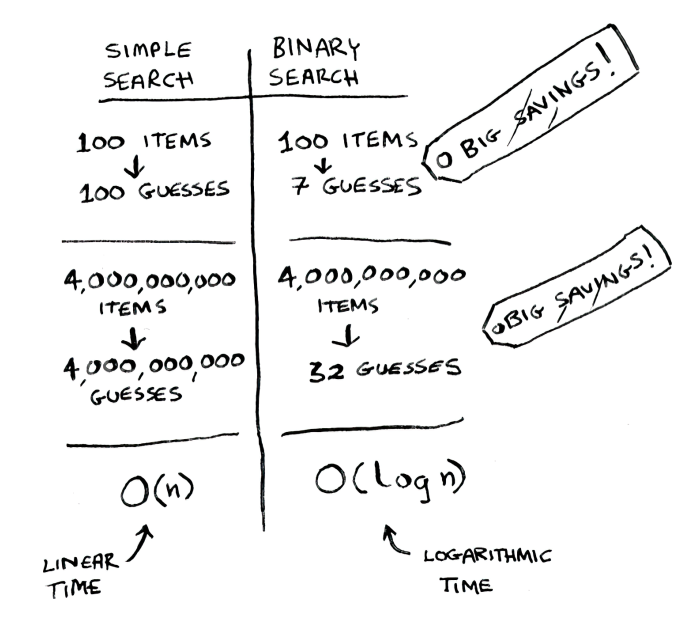 SIMPLE
SEARCH
BINARY
SEARCH
100 ITEMS
100 GUESSES
100 ITEMS
7 GUESSES
BIG SAVINGS!
4,000,000,000
ITEMS
4,000,000,000
GUESSES
4,000,000,000
ITEMS
32 GUESSES
BIG SAVINGS!
O(n)
O(log n)
LINEAR
TIME
LOGARITHMIC
TIME